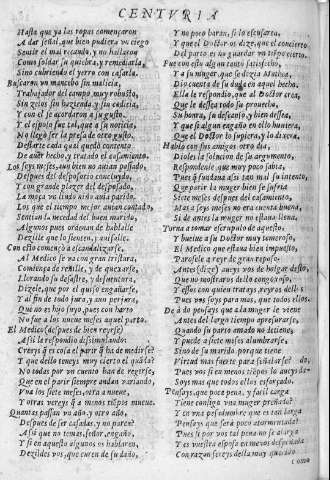 CENTVRIA
Hasta que ya las ropas començaron
A dar señal, que bien pudiera vn ciego
Sentir el mal recando, y no hallaron
Como soldar su quiebra, y remediarla,
Sino cubriendo el yerro con casarla.
Buscaron vn mancebo sin malicia,
Trabajador del campo muy robusto,
Sin zelos sin hazienda, y sin codicia,
Y con el se acordaron a su gusto.
Y el esposo fue tal, que a su noticia
No llegó ser la presa de otro gusto,
Desta arte cada qual quedó contento
De auer hecho, y tratado el casamiento.
Los seys meses, aun bien no auian passado,
Despues del desposorio concluydo,
Y con grande plazer del desposado,
La moça vn lindo niño auia parido.
Los que el tiempo mejor auian contado,
Sentian la necedad del buen marido,
Algunos pues ordenan de hablalle
Dezille que lo sienten, y auisalle.
Con esto començó a escandalizarse,
Al Medico se va con gran tristura,
Comiença de reñille, y de quexarse,
Llorando su desastre, y desuentura,
Dizele, que por el quiso engañarse,
Y al fin de todo jura, y aun perjura,
Que no es hijo suyo pues con harro
No fue a los nueue meses aquel parto.
El Medico (despues de bien reyrse)
Assi le respondio dissimulando:
Creeys q̃ es cosa el parir q̃ ha de medirse?
Y que dello teneys muy cierto el quãdo?
No todas por vn cuento han de regirse,
Que en el parir siempre andan variando,
Vna los siete meses, otra a nueue,
Y otras vereys q̃ a menos tiẽpos nueue.
Quantas passan vn año, y otro año,
Despues de ser casadas, y no paren?
Assi que no temas, señor, engaño,
Y si en aquesto algunos os hablaren,
Dezildes vos, que curen de su daño,
Y no poco baran, si lo escusaren,
Y que el Doctor os dize, que el concierto
Del parto es no guardar vn tẽpo cierto.
Fue con esto algun tanto satisfecho,
Y a su muger, que se dezia Matina,
Dio cuenta de su duda en aquel hecho.
Ella le respondio, que al Doctor crea,
Que le dessea todo su prouecho,
Su honra, su descanso, y bien dessea,
Y que si algun engaño en ello huuiera,
Que el Doctor lo supiera, y lo dixera.
Habló con sus amigos otro dia,
Dioles la solucion de su argumento,
Respondiole que muy poco sabia,
Pues fundaua assi tan mal su intento,
Que parir la muger bien se sufria
Siete meses despues del casamiento,
Mas a seys meses no era cuenta buena,
Si de antes la muger no estaua llena.
Torna a tomar escrupulo de aquesto,
Y bueluese a su Doctor muy temeroso,
El Medico que estaua bien impuesto,
Parosele a reyr de gran reposo.
Antes (dize) aueys vos de holgar desto,
Que no mostraros dello congoxoso,
Y essos con quien tratays reyros dellos
Pues vos soys para mas, que todos ellos.
De a do pensays que a la muger le viene
Antes del largo tiempo apressurarse,
Quando su parto amado no detiene,
Y puede a siete meses alumbrarse,
Sino de su marido, porque tiene
Virtud mas fuerte para señalarse?
Pues vos si en menos tiẽpos lo aueys dado
Soys mas que todos ellos esforçado.
Pensays, que poca pena, y facil carga
Tiene contigo vna muger preñada?
Y en vna pesadumbre que es tan larga
Pensays que será poco atormentada?
Pues si por vos tal pena no se alarga
Y es vuestra esposa en menos despenada
Con razon sereys della muy querido